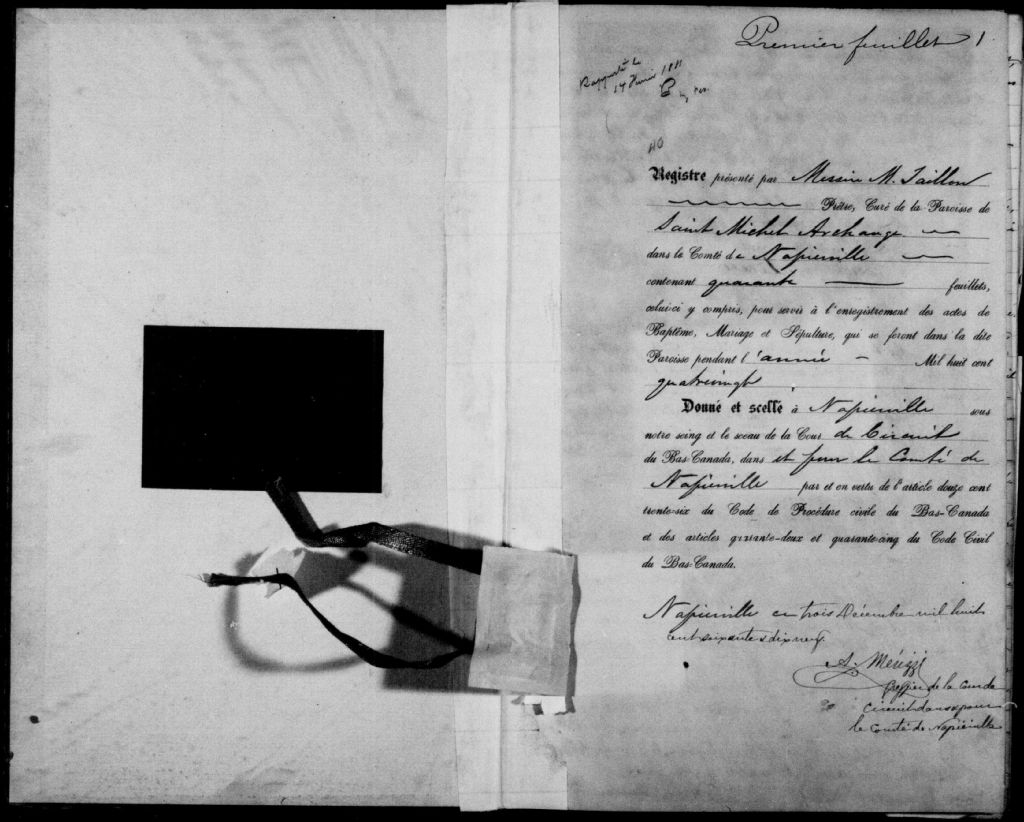 Premier feuillet 1
Rapporté le
14 1881
40
Registre présenté par Messire M. Taillon
Prêtre, Curé de la Paroisse de
Saint Michel Archange
dans le Comté de Napierville
contenant quarante feuillets,
celui-ci y compris, pour servir à l'enregistrement des actes de
Baptême, Mariage et Sépulture, qui se feront dans la dite
Paroisse pendant l'année Mil huit cent
quatrevingt
Donné et scellé à Napierville sous
notre seing et le sceau de la Cour de Circuit
du Bas-Canada, dans et pour le Comté de
Napierville par et en vertu de l'article douze cent
trente-six du Code de Procédure civile du Bas-Canada
et des articles quarante-deux et quarante-cinq du Code Civil
du Bas-Canada.
Napierville ce trois Décembre mil huit
cent soixante & dix neuf.
A. Mérizzi
Greffier de la Cour de
Circuit dans & pour
le Comté de Napierville